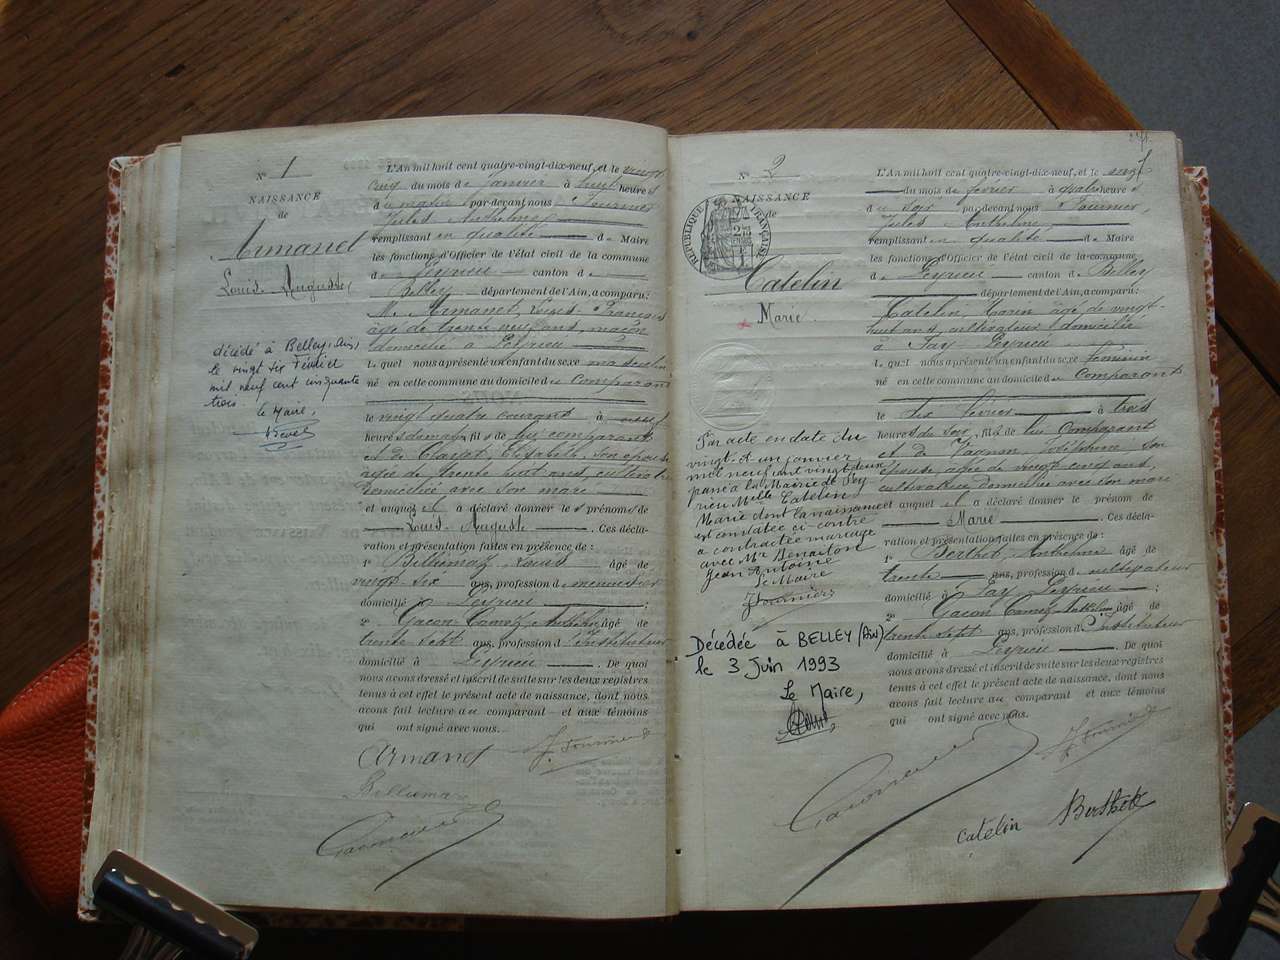 N° 1
NAISSANCE
de
Armanet
Louis Auguste
décédé à Belley, Ain,
le vingt six Février
mil neuf cent cinquante
trois. Le Maire,
L'An mil huit cent quatre-vingt-dix-neuf, et le vingt
cinq du mois de Janvier à huit heures
du matin par-devant nous Fournier
Jules Anthelme
remplissant en qualité de Maire
les fonctions d'Officier de l'état civil de la commune
de Peyrieu canton de
Belley département de l'Ain, a comparu:
M. Armanet, Louis François
âgé de trente neuf ans, maçon
domicilié à Peyrieu
Lequel nous a présenté un enfant du sexe masculin
né en cette commune au domicile du Comparant
le vingt quatre courant à neuf
heures du matin, fils de lui comparant
et de Claret, Elisabeth, son épouse
âgée de trente huit ans, cultivatrice
domiciliée avec son mari
et auquel il a déclaré donner les prénoms de
Louis Auguste. Ces décla-
ration et présentation faites en présence de:
1° Billiemaz, Louis âgé de
vingt six ans, profession de menuisier
domicilié à Peyrieu;
2° Gacon Camoz, Anthelme âgé de
trente sept ans, profession d'Instituteur
domicilié à Peyrieu. De quoi
nous avons dressé et inscrit de suite sur les deux registres
tenus à cet effet le présent acte de naissance, dont nous
avons fait lecture au comparant et aux témoins
qui ont signé avec nous.
Armanet J. Fournier
Billiemaz
N° 2
NAISSANCE
de
RÉPUBLIQUE FRANÇAISE
Catelin
Marie
Par acte en date du
vingt-et-un janvier
mil neuf cent vingt deux
passé à la Mairie de Pey
rieu Melle Catelin
Marie dont la naissance
est constatée ci-contre
a contractée mariage
avec Mr
Jean Antoine
Le Maire
J Fournier
Décédée à BELLEY (Ain)
le 3 Juin 1993
Le Maire,
L'An mil huit cent quatre-vingt-dix-neuf, et le
du mois de février à quatre heures
du soir par-devant nous Fournier,
Jules Anthelme
remplissant en qualité de Maire
les fonctions d'Officier de l'état civil de la commune
de Peyrieu canton de Belley
département de l'Ain, a comparu:
Catelin âgé de vingt-
huit ans, cultivateur domicilié
à Fay Peyrieu
Lequel nous a présenté un enfant du sexe féminin
né en cette commune au domicile du Comparant
le six février à trois
heures du soir, fille de lui Comparant
et de Joséphine son
épouse âgée de vingt cinq ans,
cultivatrice domiciliée avec son mari
et auquel il a déclaré donner le prénom de
Marie. Ces décla-
ration et présentation faites en présence de:
1° Berthet, Anthelme âgé de
trente ans, profession de cultivateur
domicilié à Fay Peyrieu;
2° Gacon Camoz Anthelme âgé de
trente sept ans, profession d'Instituteur
domicilié à Peyrieu. De quoi
nous avons dressé et inscrit de suite sur les deux registres
tenus à cet effet le présent acte de naissance, dont nous
avons fait lecture au comparant et aux témoins
qui ont signé avec nous.
J. Fournier
Catelin Berthet